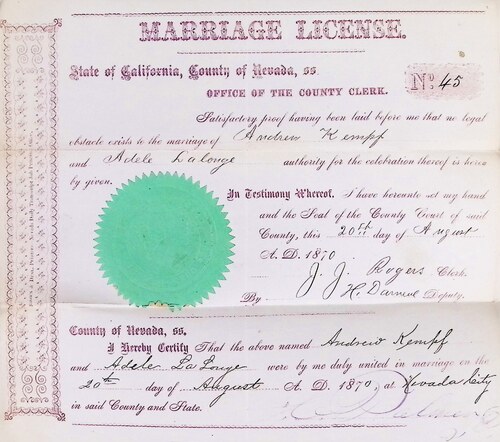 MARRIAGE LICENSE.
State of California, County of Nevada, ss.
No. 45
OFFICE OF THE COUNTY CLERK.
Satisfactory proof having been laid before me that no legal
obstacle exists to the marriage of Andrew Kempf
and Adele Lalonge authority for the celebration thereof is here-
by given.
In Testimony Whereof, I have hereunto set my hand
and the Seal of the County Court of said
County, this 20th day of August
A. D. 1870
J. J. Rogers Clerk.
By H. Deputy.
County of Nevada, ss.
I Hereby Certify That the above named Andrew Kempf
and Adele LaLonge were by me duly united in marriage on the
20th day of August A. D. 1870, at Nevada City
in said County and State.